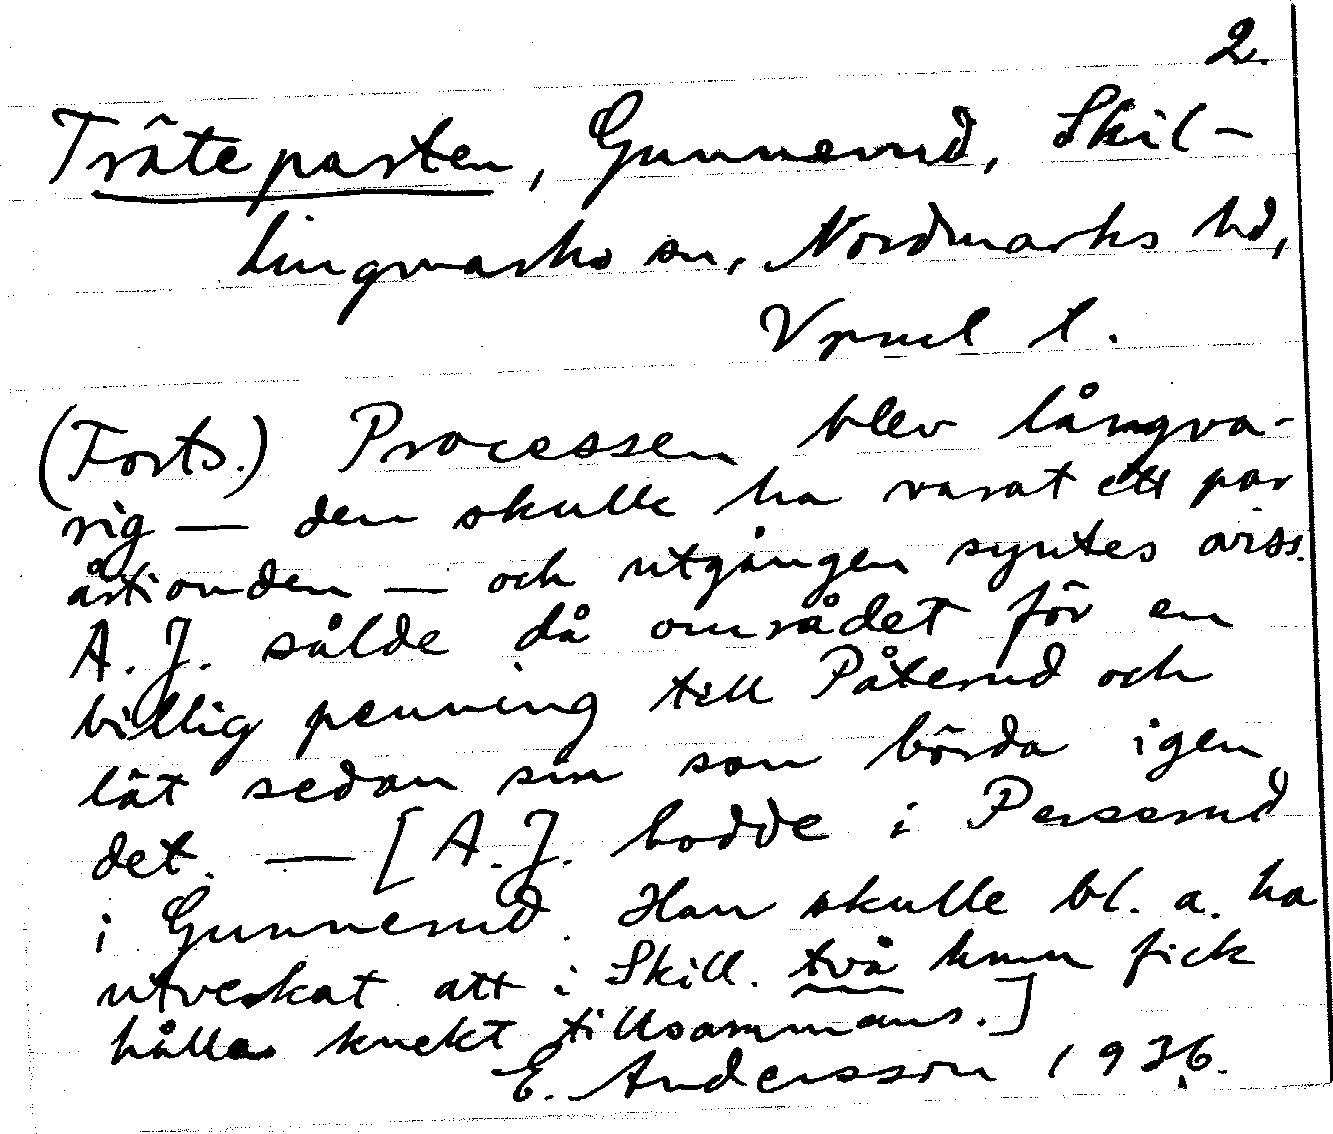 2.
Träteparten, Gunnerud, Skil-
lingmarks sn, Nordmarks hd,
Vrml l.
(Forts.) Processen blev långva-
rig — den skulle ha varat ett par
årtionden — och utgången syntes oviss.
A. J. sålde då området för en
billig penning till Påterud och
lät sedan sin son börda igen
det. — [A. J. bodde i Perserud
i Gunnerud. Han skulle bl. a. ha
utverkat att i Skill. två hmn fick
hålla knekt tillsammans.]
E. Andersson 1936.